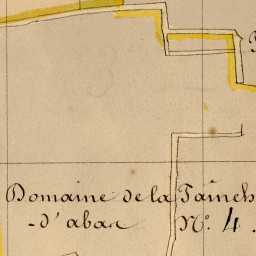 Domaine de la Taînch
-d'abac N°. 4.